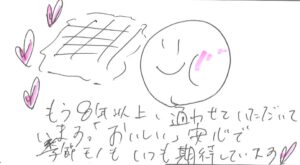 もう8年以上、通わせていただいて
います。「おいしい」安心で
季節モノも いつも期待しています